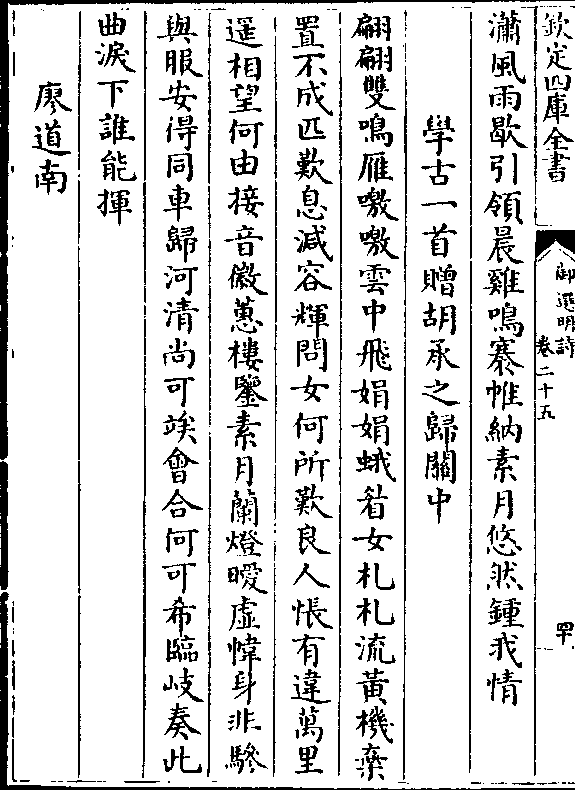 欽定四庫全書
御選明詩
卷二十五
罕
瀟風雨歇引領晨雞鳴褰帷納素月悠然鍾我情
學古一首贈胡承之歸關中
翩翩雙鳴雁嗷嗷雲中飛娟娟蛾眉女札札流黃機棄
置不成匹歎息減容輝問女何所歎良人悵有違萬里
遥相望何由接音徽蕙樓鑒素月蘭燈曖虛幃身非驂
與服安得同車歸河清尚可竢會合何可希臨岐奏此
曲淚下誰能揮
廖道南